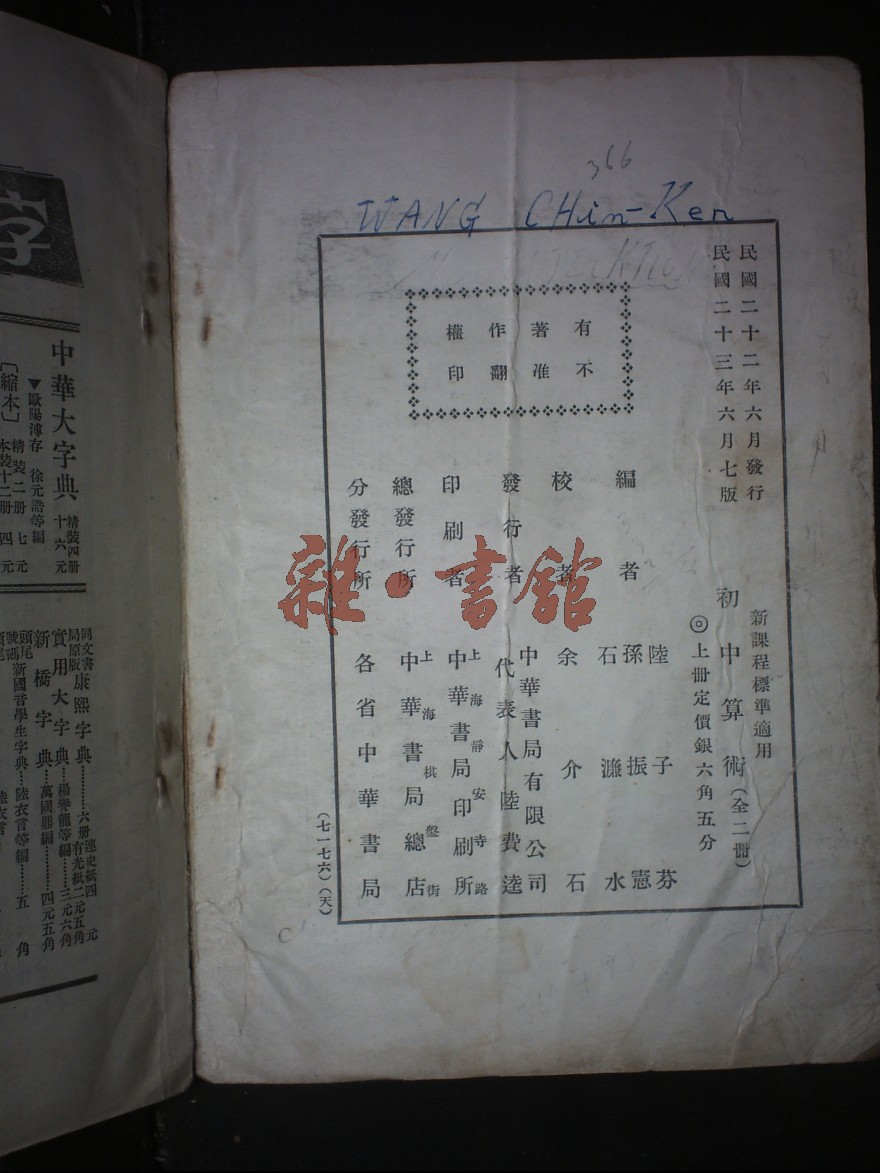 366
WANG CHin-Ken
民國二十二年六月發行
民國二十三年六月七版
新課程標準適用
初中算術(全二冊)
◎上冊定價銀六角五分
有著作權
不准翻印
編者 陸子芬
孫振憲
石濂水
校者 余介石
發行者 中華書局有限公司
代表人陸費逵
印刷者 上海靜安寺路
中華書局印刷所
總發行所 上海棋盤街
中華書局總店
分發行所 各省中華書局
(七一七六)(天)
雜·書館
字
中華大字典 精裝四冊 十六元
▼歐陽溥存 徐元誥等編
〔縮本〕 精裝二冊 七元
本裝十二冊 四元
同文書局原版康熙字典………六冊 連史紙四元 有光紙二元五角
實用大字典…楊譽龍等編…三元六角
新橋字典…萬國鼎編…四元五角
頭尾號碼新國音學生字典…陸衣言等編…五角